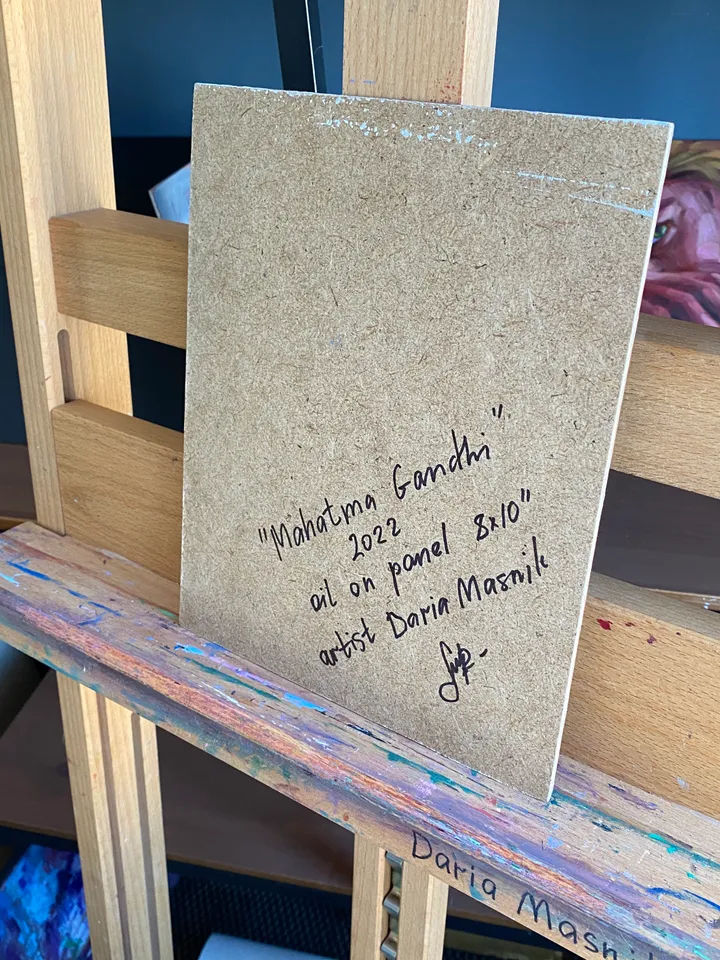 "Mahatma Gandhi"
2022
oil on panel 8x10"
artist Daria Masnik
Daria Masni